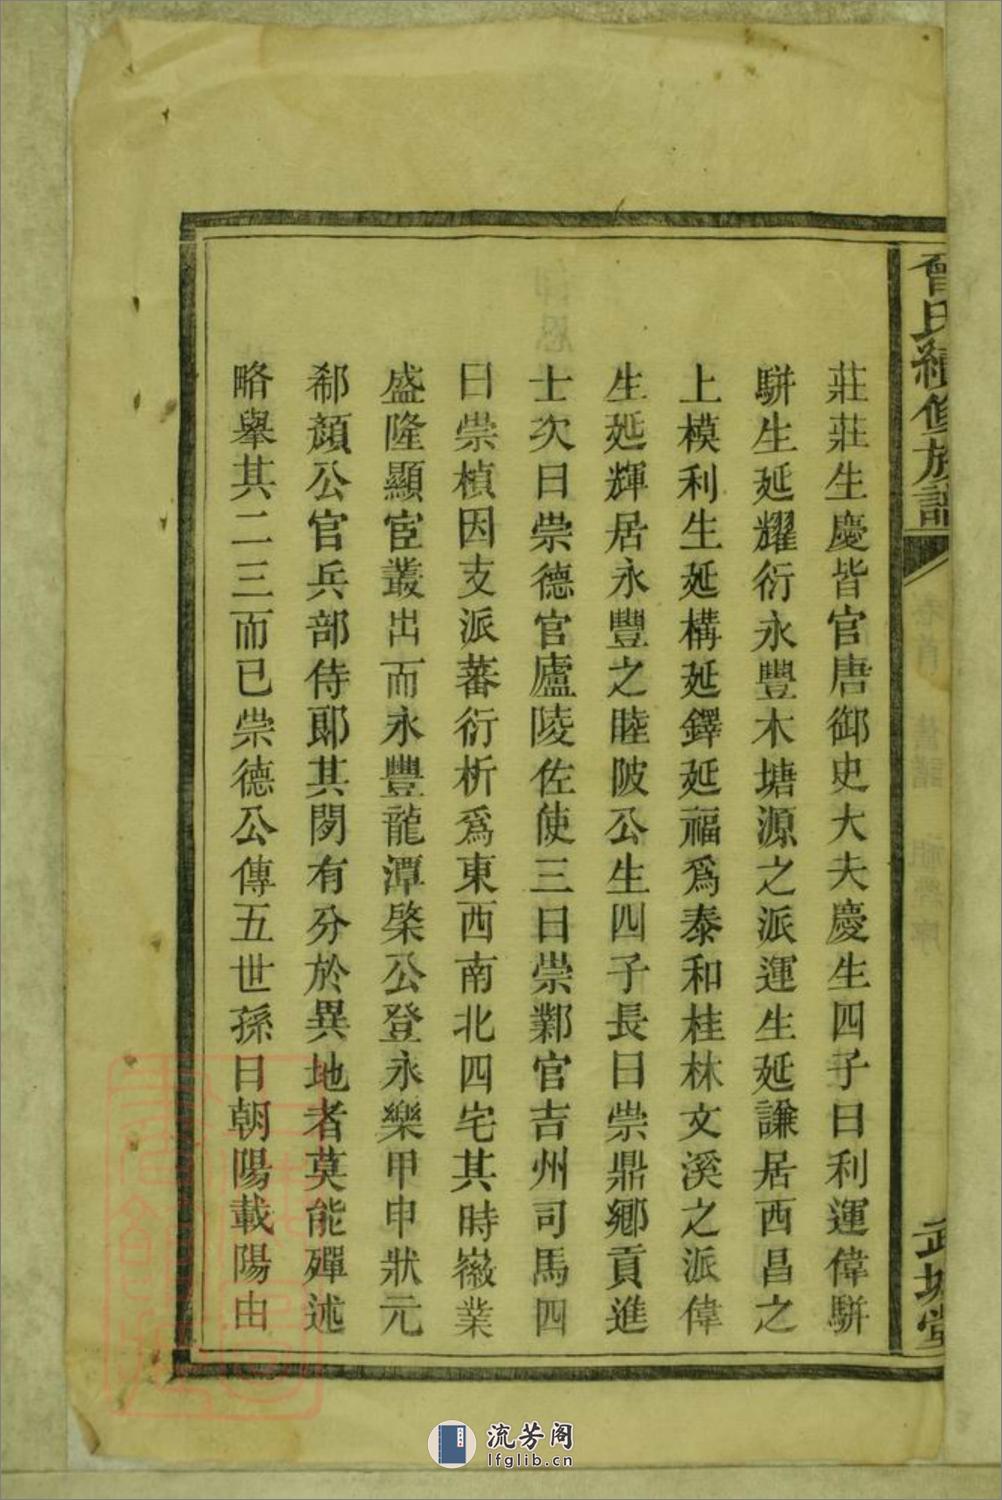 曾氏續修族譜
卷首
舊譜
序
武城堂
莊莊生慶皆官唐御史大夫慶生四子曰利運偉駢
駢生延耀衍永豐木塘源之派運生延謙居西昌之
上模利生延構延鐸延福爲泰和桂林文溪之派偉
生延輝居永豐之睦陂公生四子長曰崇鼎鄉貢進
士次曰崇德官廬陵佐使三曰崇鄴官吉州司馬四
曰崇楨因支派蕃衍析爲東西南北四宅其時徽業
盛隆顯宦叢出而永豐龍潭棨公登永樂甲申狀元
郗顏公官兵部侍郎其閒有分於異地者莫能殫述
略舉其二三而已崇德公傳五世孫曰朝陽載陽由
流芳阁
lfglib.cn